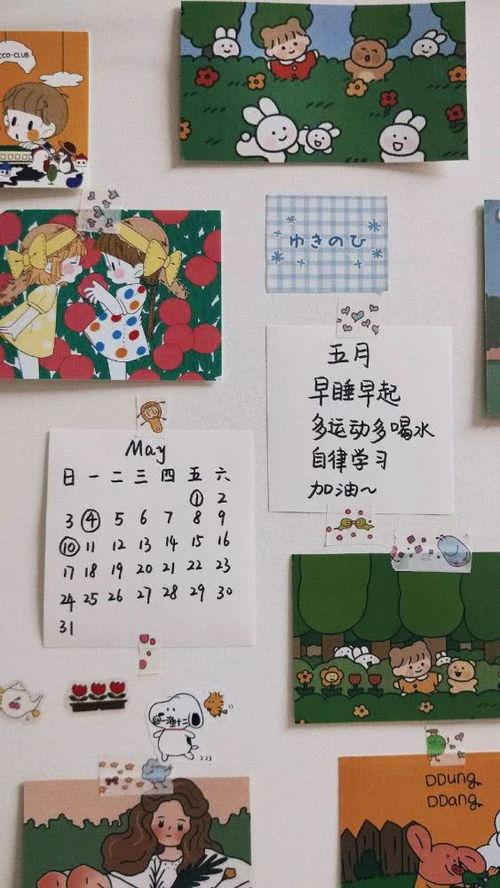 CCO-CLUB
ゆきのひ
五月
早睡早起
多运动多喝水
自律学习
加油~
May
日 一 二 三 四 五 六
1 2
3 4 5 6 7 8 9
10 11 12 13 14 15 16
17 18 19 20 21 22 23
24 25 26 27 28 29 30
31
DDung
DDang